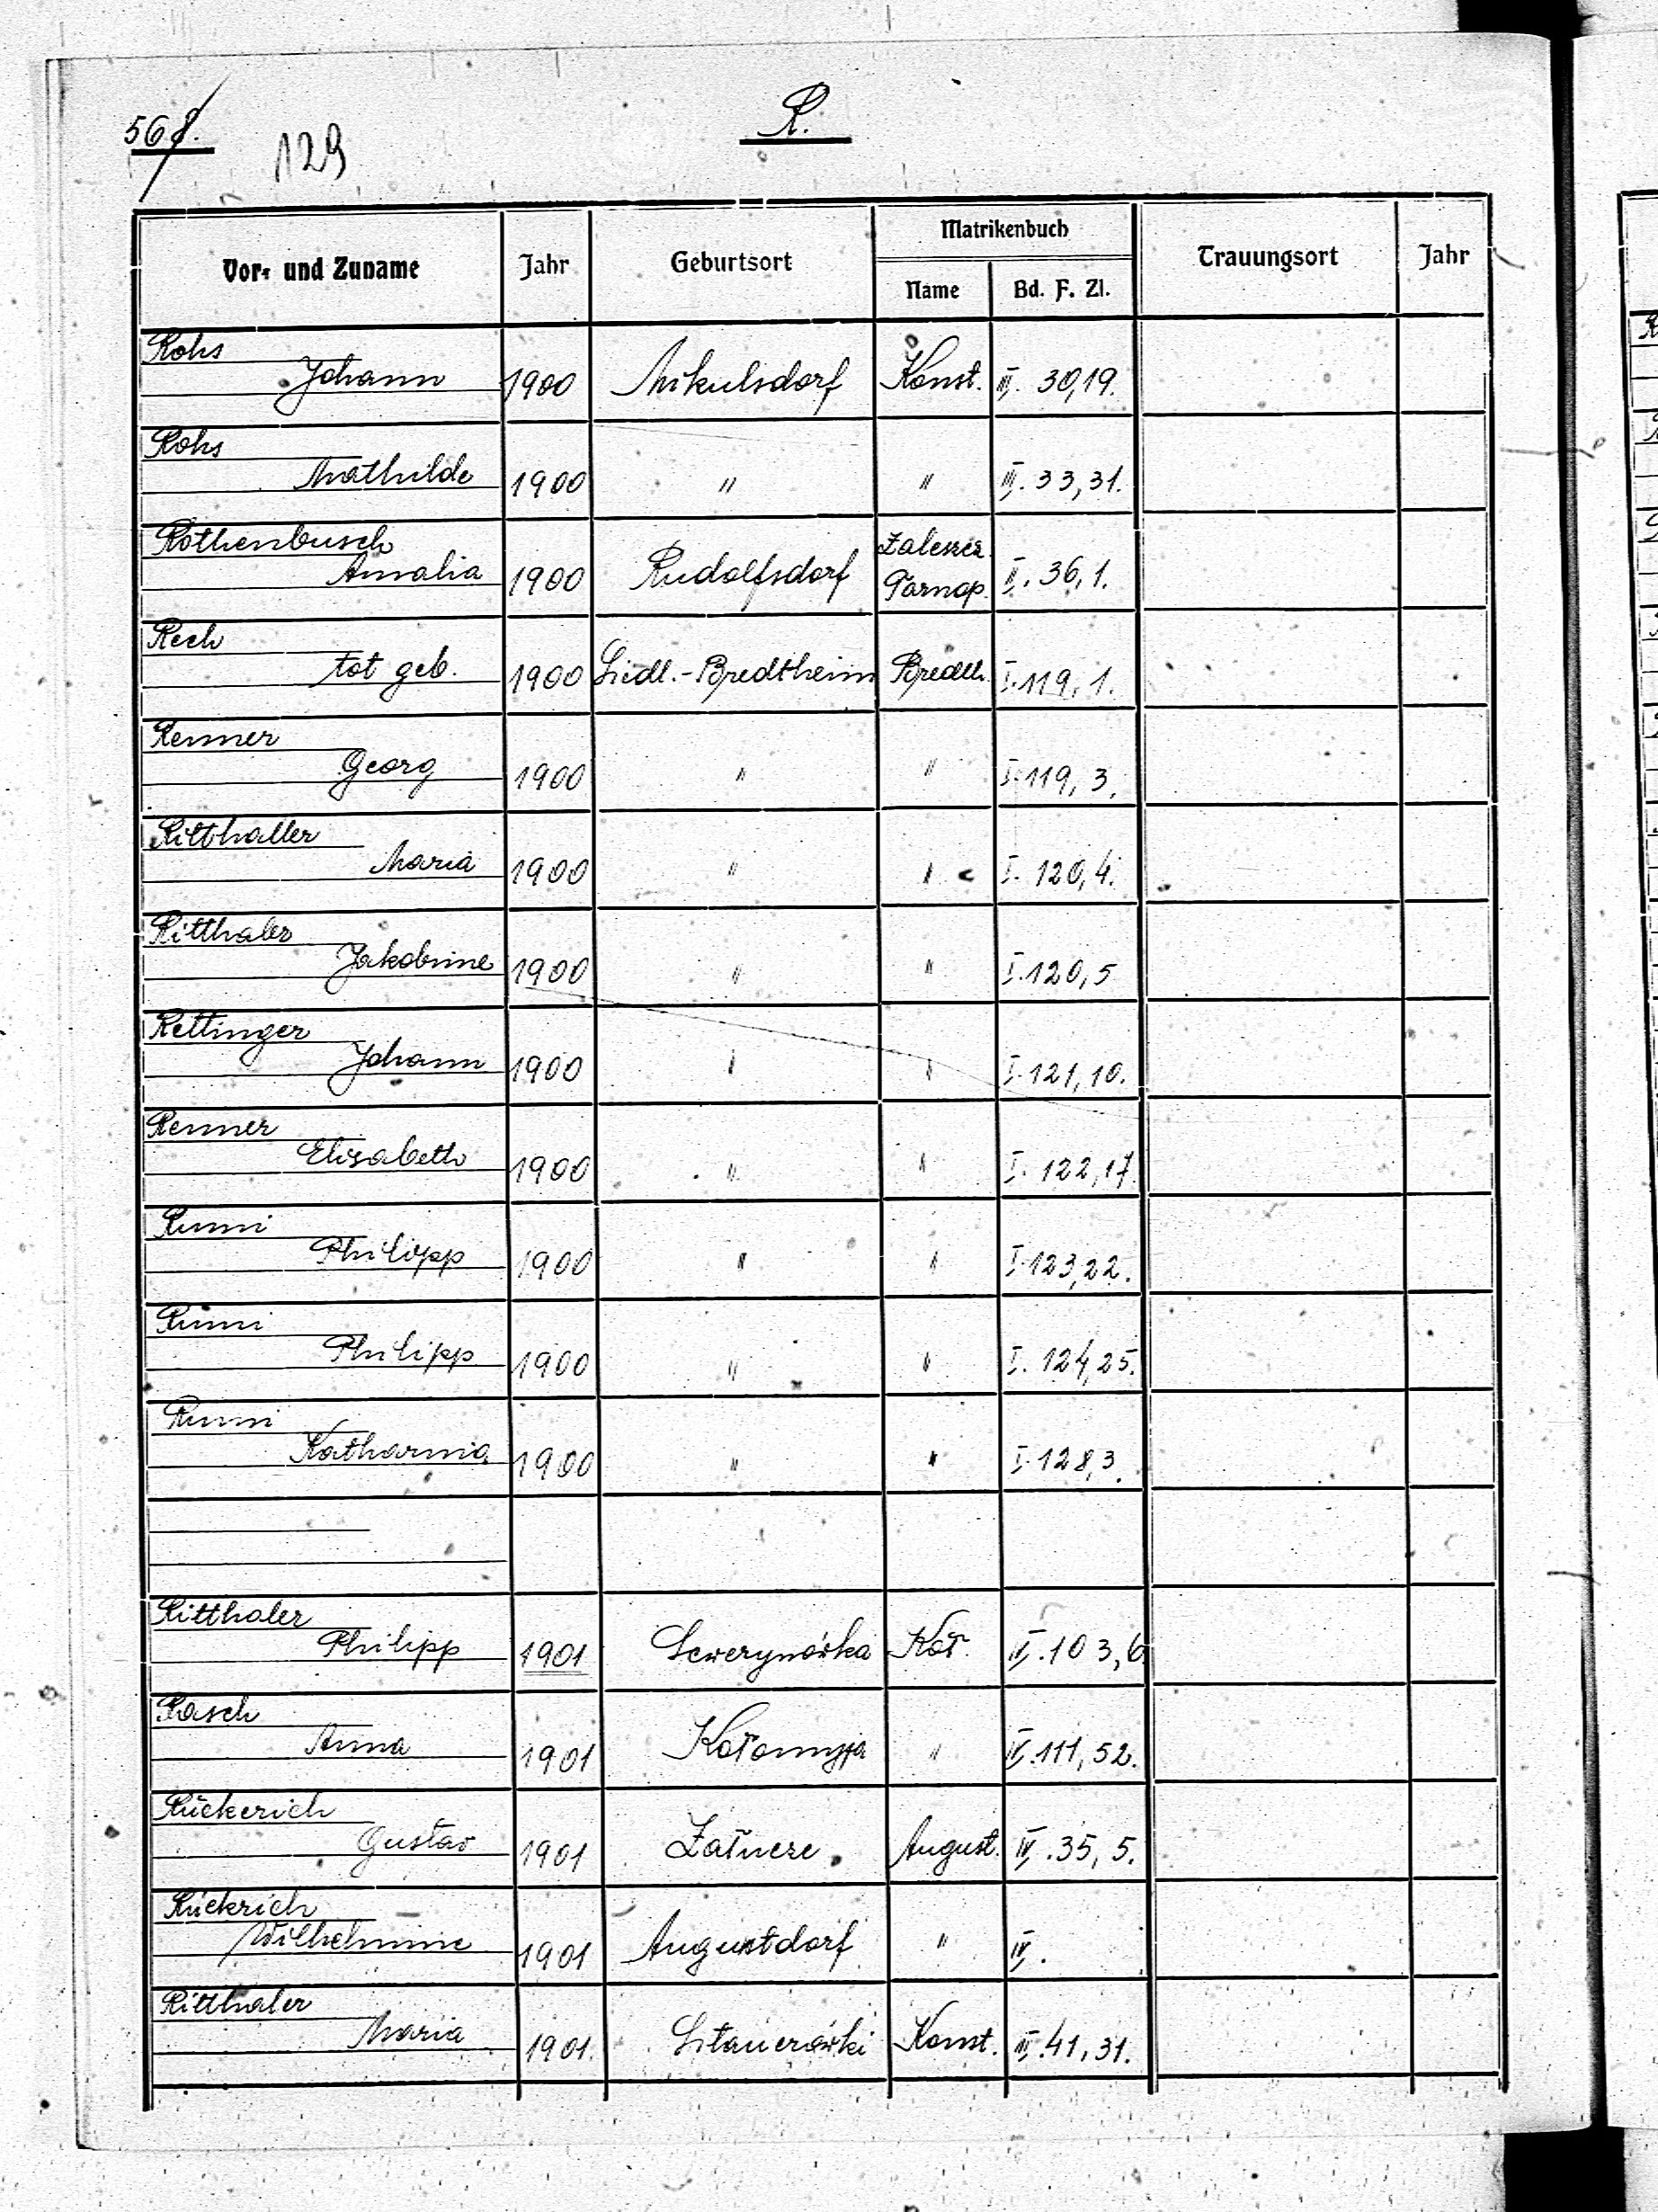 568.
129
R.
Vor- und Zuname Jahr Geburtsort Matrikenbuch Trauungsort Jahr
Name Bd. F. Zl.
Rohs
Johann 1900 Mikulsdorf Konst. III. 30,19.
Rohs
Mathilde 1900 " " III. 33,31.
Rothenbusch Zaleszcz.
Amalia 1900 Rudolfsdorf Tarnop. II. 36,1.
Rech
tot geb. 1900 Siedl.-Bredtheim Bredth. I. 119,1.
Renner
Georg 1900 " " I. 119,3.
Ritthaller
Maria 1900 " " I. 120,4.
Ritthaler
Jakobine 1900 " " I. 120,5
Rettinger
Johann 1900 " " I. 121,10.
Renner
Elisabeth 1900 " " I. 122,17.
Rumi
Philipp 1900 " " I. 123,22.
Rumi
Philipp 1900 " " I. 124,25.
Rumi
Katharina 1900 " " I. 128,3.
Ritthaler
Philipp 1901 Sewerynówka Koł. IV. 103,6
Rasch
Anna 1901 Kołomyja " IV. 111,52.
Rückerich
Gustav 1901 Załucze August. IV. 35,5.
Rückrich
Wilhelmine 1901 Augustdorf " IV.
Ritthaler
Maria 1901. Konst. III. 41,31.